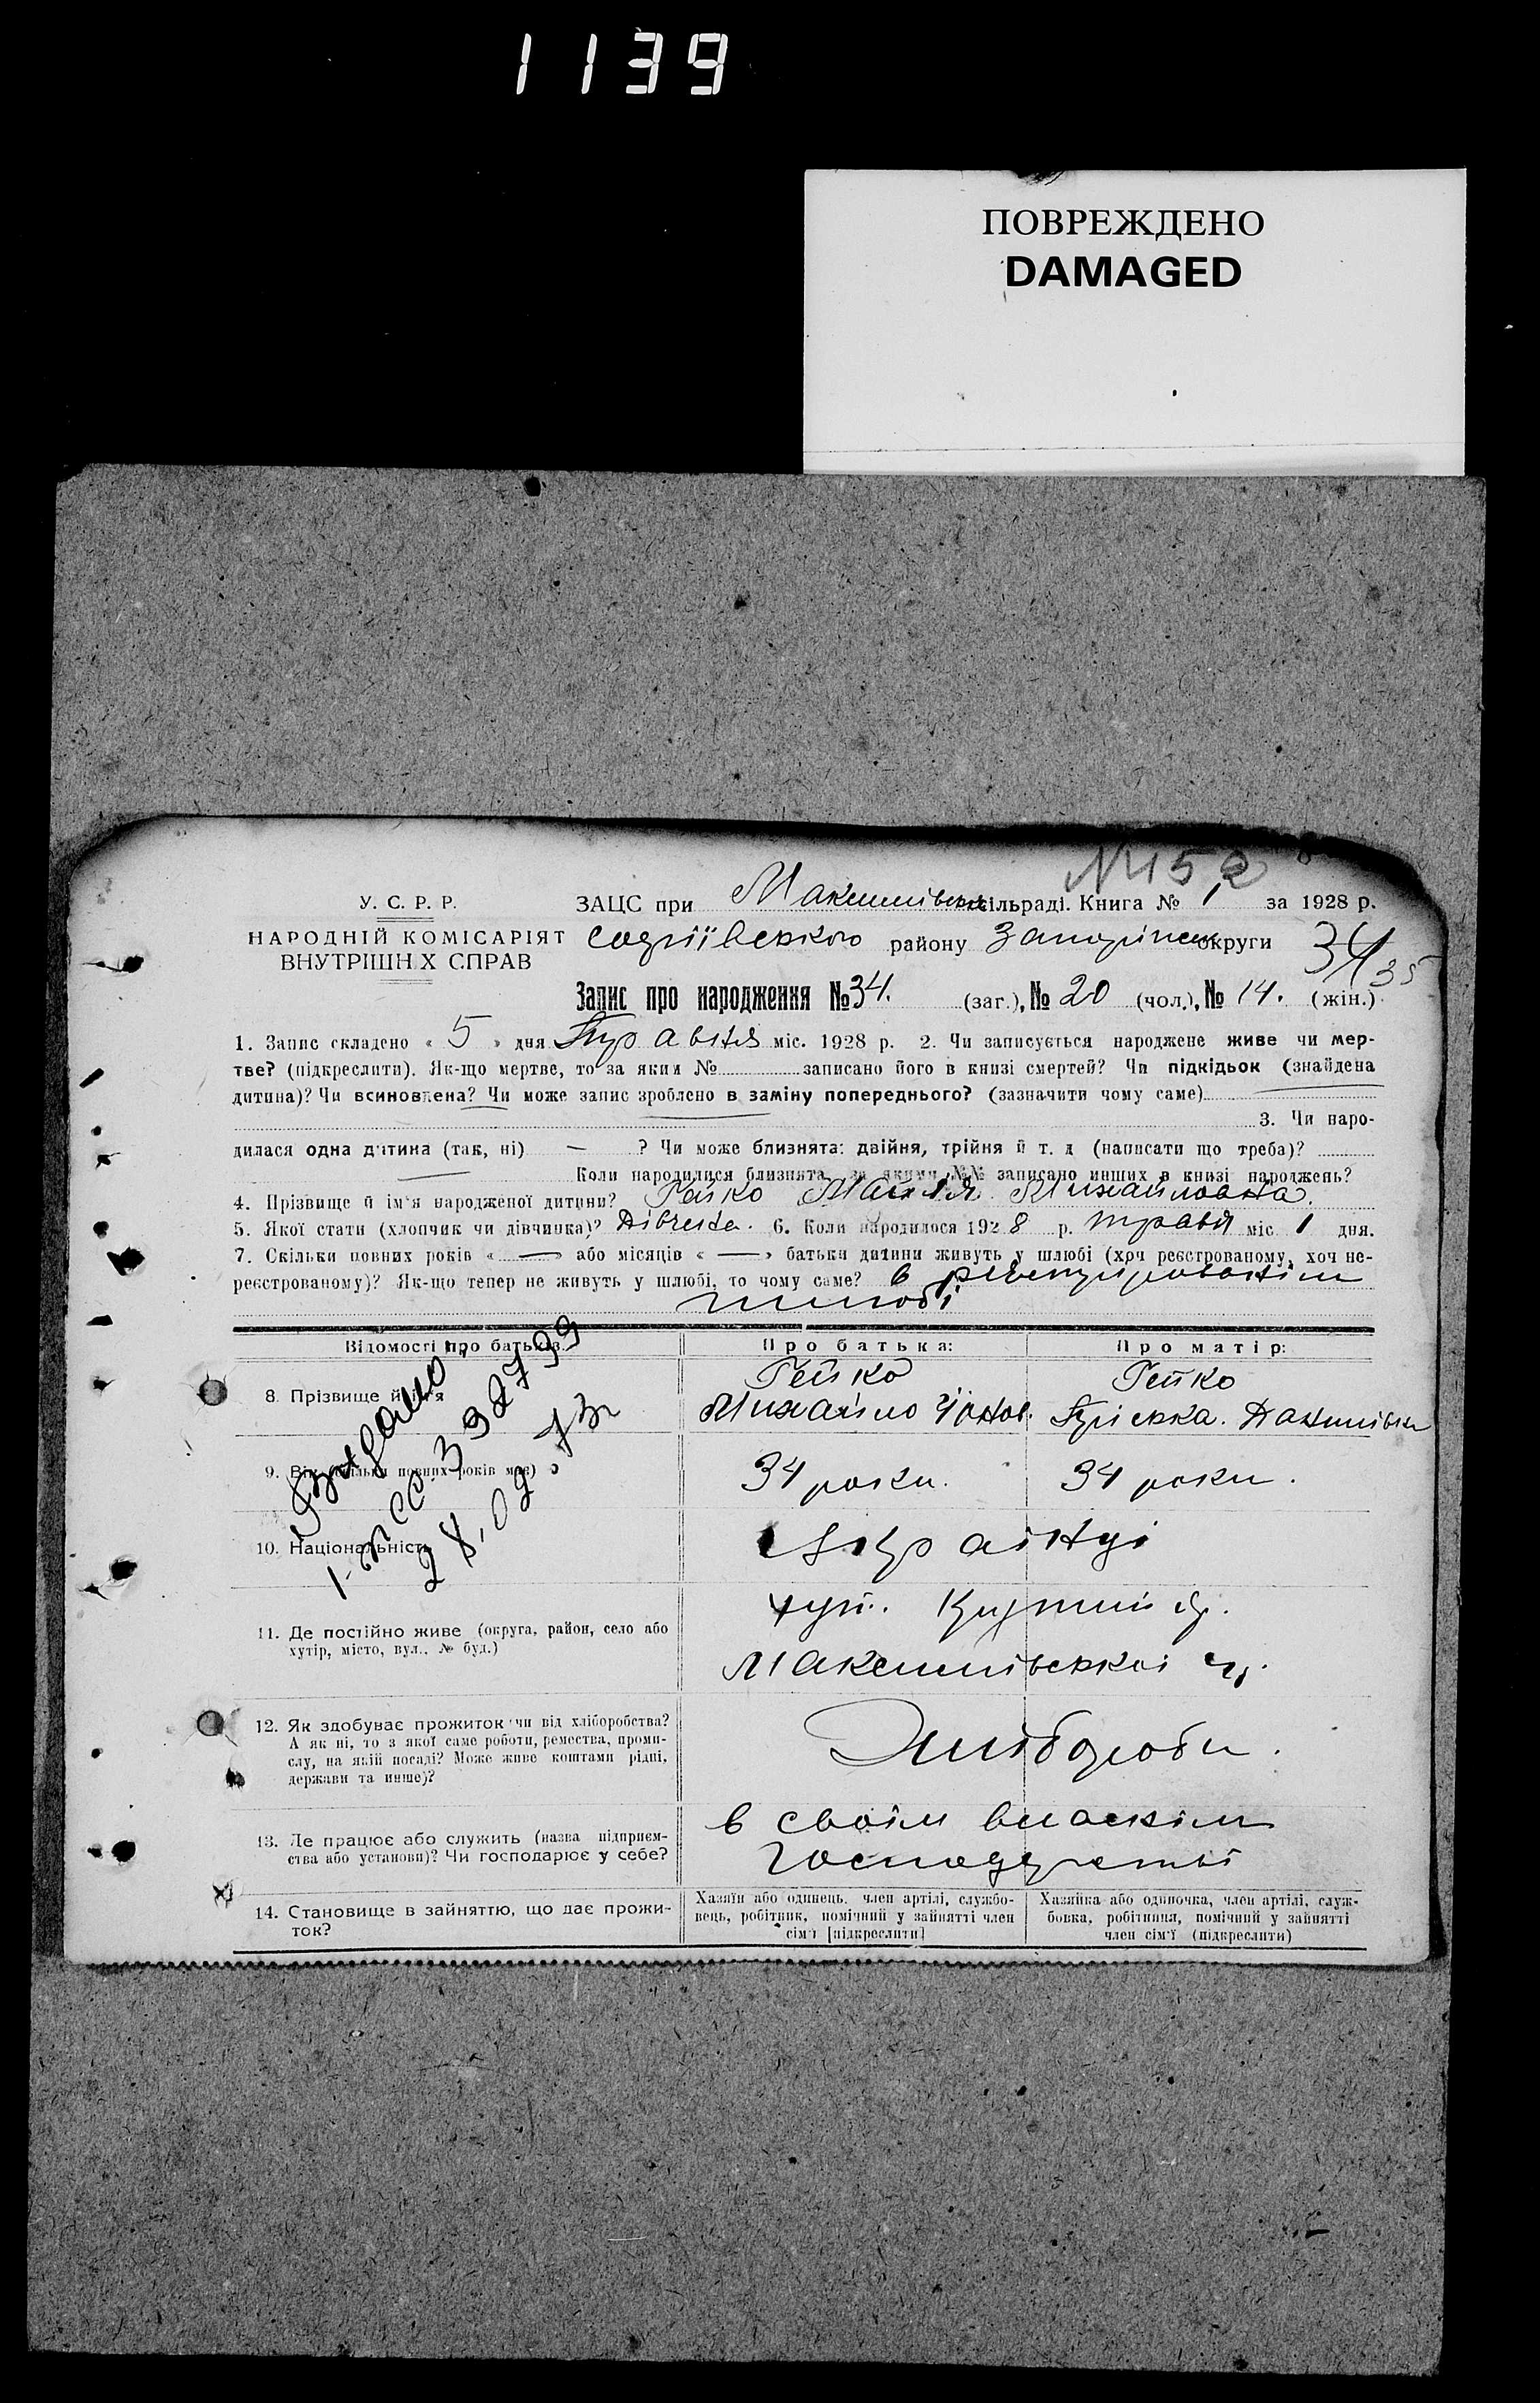 1139
ПОВРЕЖДЕНО
DAMAGED
№ 152
У. С. Р. Р.
ЗАЦС при сільраді. Книга № 1 за 1928 р.
НАРОДНІЙ КОМІСАРІЯТ
ВНУТРІШН Х СПРАВ
району округи 34 35
Запис про народження № 34. (заг.), № 20 (чол.), № 14. (жін.)
1. Запис складено « 5 » дня Травня міс. 1928 р. 2. Чи записується народжене живе чи мер-
тве? (підкреслити). Як-що мертве, то за яким № записано його в книзі смертей? Чи підкідьок (знайдена
дитина)? Чи всиновлена? Чи може запис зроблено в заміну попереднього? (зазначити чому саме)
3. Чи наро-
дилася одна дитина (так, ні) — ? Чи може близнята: двійня, трійня й т. д (написати що треба)?
Коли народилися близнята, за якими №№ записано инших в книзі народжень?
4. Прізвище й ім'я народженої дитини? Гейко Марія Михайловна.
5. Якої стати (хлопчик чи дівчинка)? Дівчина. 6. Коли народилося 1928 р. травня міс 1 дня.
7. Скільки повних років « — » або місяців « — » батьки дитини живуть у шлюбі (хоч реєстрованому, хоч не-
реєстрованому)? Як-що тепер не живуть у шлюбі, то чому саме? в
шлюбі
Відомості про батьків: Про батька: Про матір:
8. Прізвище й ім'я Гейко Гейко
Михайло
9. Вік (скільки повних років має) 34 роки. 34 роки.
10. Національність Українці
11. Де постійно живе (округа, район, село або
хутір, місто, вул., № буд.)
хут. Крутий
12. Як здобуває прожиток чи від хліборобства?
А як ні, то з якої саме роботи, ремества, проми-
слу, на якій посаді? Може живе коштами рідні,
держави та инше)?
Хлібороби.
13. Де працює або служить (назва підприєм-
ства або установи)? Чи господарює у себе?
в своїм власнім
господарстві
14. Становище в зайняттю, що дає прожи-
ток?
Хазяїн або одинець, член артілі, службо-
вець, робітник, помічний у зайнятті член
сім'ї [підкреслити]
Хазяйка або одиночка, член артілі, служ-
бовка, робітниця, помічний у зайнятті
член сім'ї (підкреслити)